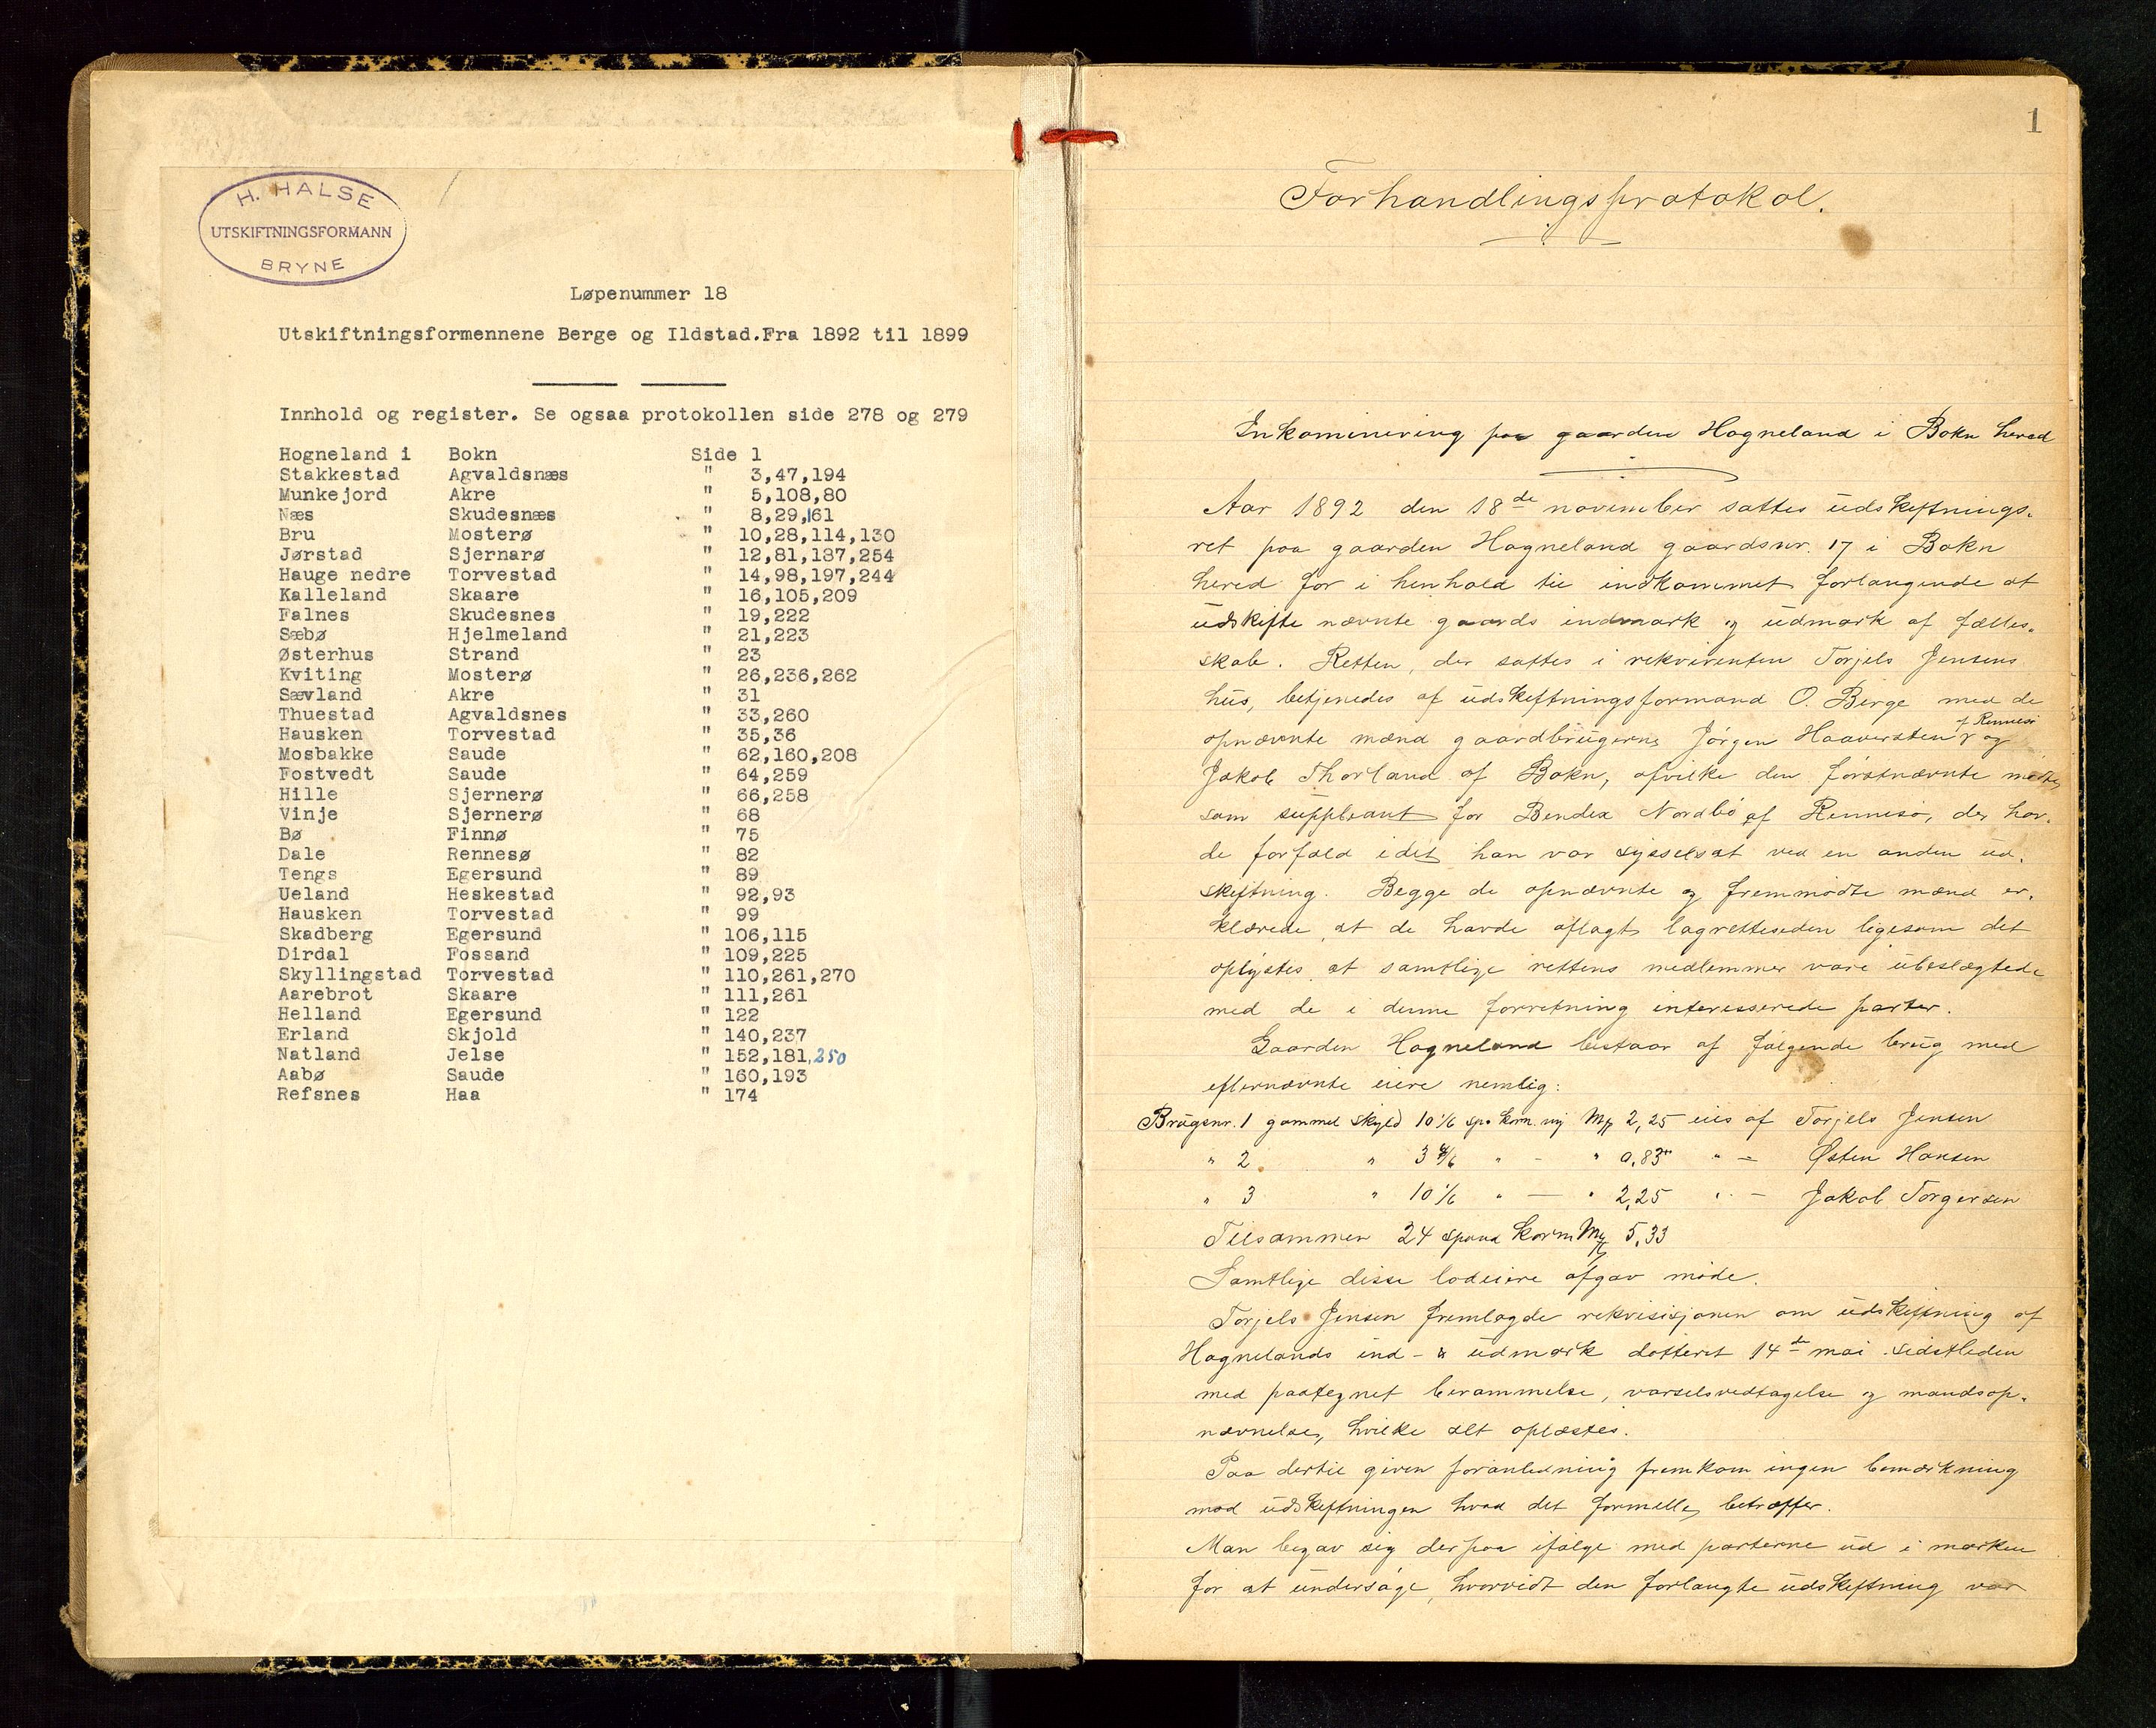 H. HALSE
UTSKIFTNINGSFORMANN
BRYNE
Løpenummer 18
Utskiftningsformennene Berge og Ildstad.Fra 1892 til 1899
Innhold og register. Se ogsaa protokollen side 278 og 279
Hogneland i Bokn Side 1
Stakkestad Agvaldsnæs " 3,47,194
Munkejord Akre " 5,108,80
Næs Skudesnæs " 8,29,161
Bru Mosterø " 10,28,114,130
Jørstad Sjernarø " 12,81,187,254
Hauge nedre Torvestad " 14,98,197,244
Kalleland Skaare " 16,105,209
Falnes Skudesnes " 19,222
Sæbø Hjelmeland " 21,223
Østerhus Strand " 23
Kviting Mosterø " 26,236,262
Sævland Akre " 31
Thuestad Agvaldsnes " 33,260
Hausken Torvestad " 35,36
Mosbakke Saude " 62,160,208
Fostvedt Saude " 64,259
Hille Sjernerø " 66,258
Vinje Sjernerø " 68
Bø Finnø " 75
Dale Rennesø " 82
Tengs Egersund " 89
Ueland Heskestad " 92,93
Hausken Torvestad " 99
Skadberg Egersund " 106,115
Dirdal Fossand " 109,225
Skyllingstad Torvestad " 110,261,270
Aarebrot Skaare " 111,261
Helland Egersund " 122
Erland Skjold " 140,237
Natland Jelse " 152,181,250
Aabø Saude " 160,193
Refsnes Haa " 174
1
Forhandlingsprotokol.
Inkaminering paa gaarden Hogneland i Bokn herred
Aar 1892 den 18de november sattes udskiftnings-
ret paa gaarden Hogneland gaardsnr. 17 i Bokn
hered for i henhold til indkommet forlangende at
udskifte nævnte gaards indmark og udmark af fælles-
skab. Retten, der sattes i rekvirenten Torjels Jensens
hus, betjenedes af udskiftningsformand O. Berge med de
opnævnte mænd gaardbrugerne Jørgen Haaversten af Rennesø og
Jakob Thorland af Bokn, afvilke den førstnævnte mødte
som suppleant for Bendix Nordbø af Rennesø, der hav-
de forfald idet han var sysselsat ved en anden ud-
skiftning. Begge de opnævnte og fremmødte mænd er-
klærede at de havde aflagt lagretteseden ligesom det
oplystes at samtlige rettens medlemmer vare ubeslægtede
med de i denne forretning interesserede parter.
Gaarden Hogneland bestaar af følgende brug med
efternævnte eiere nemlig:
Brugsnr. 1 gammel skyld 10 1/6 sp. korn ny Mk 2,25 eies af Torjels Jensen
" 2 " 3 4/6 " - " 0,83 " - Østen Hansen
" 3 " 10 1/6 " - " 2,25 " - Jakob Torgersen
Tilsammen 24 spand korn Mk 5,33
Samtlige disse lodeiere afgav møde.
Torjels Jensen fremlagde rekvisisjonen om udskiftning af
Hognelands ind- & udmark datteret 14de mai sidstleden
med paategnet berammelse, varselsvedtagelse og mandsop-
nævnelse, hvilke alt oplæstes.
Paa dertil given foranledning fremkom ingen bemærkning
mod udskiftningen hvad det formelle betræffer.
Man begav sig derpaa ifølge med parterne ud i marken
for at undersøge, hvorvidt den forlangte udskiftning var